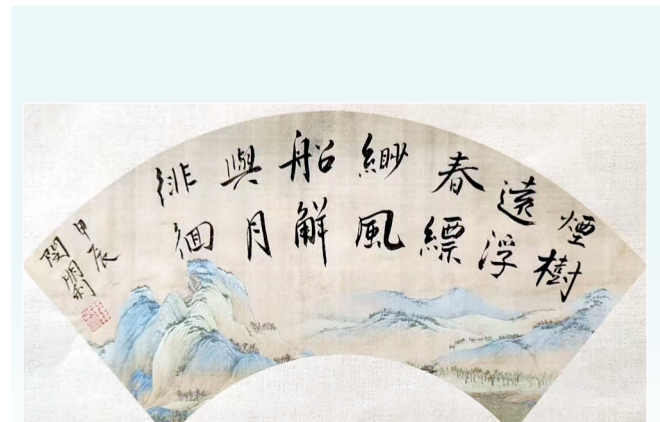 煙樹
遠浮
春縹
緲風
船觧
與月
徘徊
甲辰
閆明利